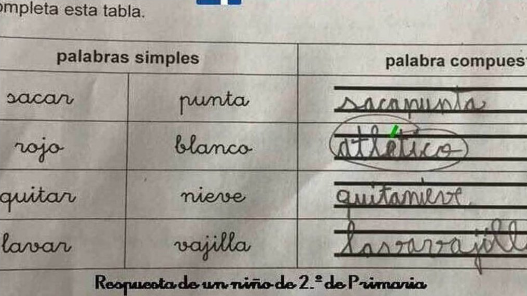 ompleta esta tabla.
palabras simples palabra compues
sacar punta sacapunta
rojo blanco atlético
quitar nieve quitanieve
lavar vajilla lavavajill
Respuesta de un niño de 2.º de Primaria